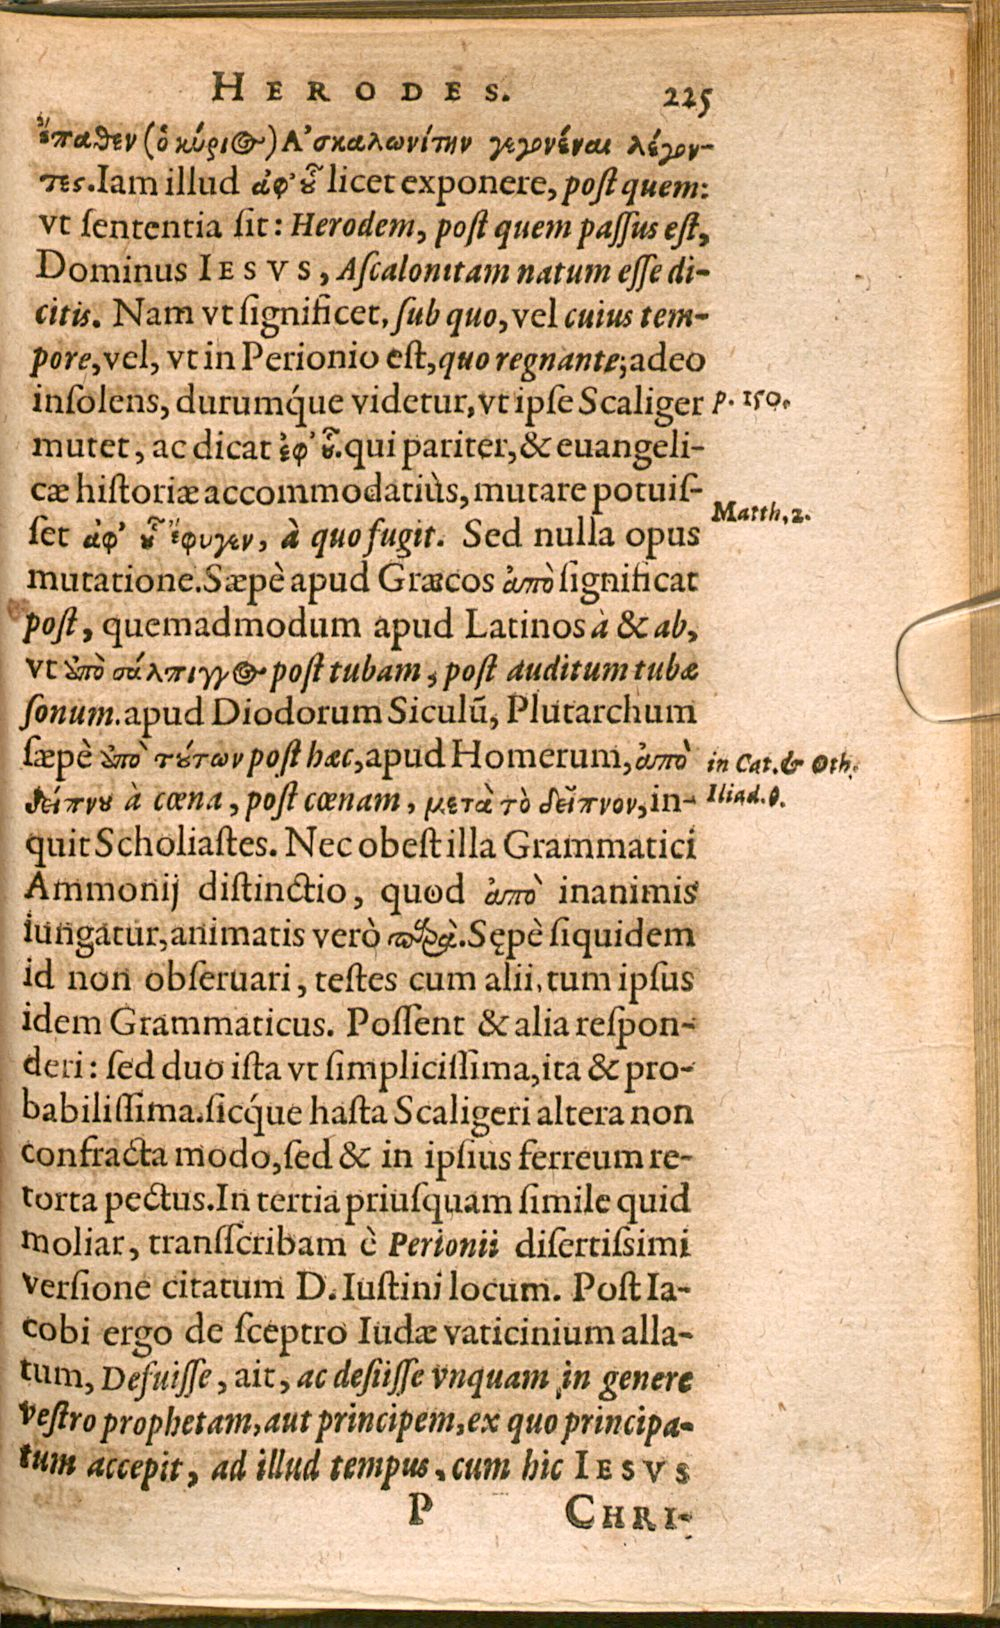 HERODES. 225
ἔπαθεν (ὁ κύριος) Ἀσκαλωνίτην γεγονέναι λέγον-
τες. Iam illud ἀφ' οὗ licet exponere, poſt quem:
vt ſententia ſit: Herodem, poſt quem paſſus eſt,
Dominus IESVS, Aſcalonitam natum eſſe di-
citis. Nam vt ſignificet, ſub quo, vel cuius tem-
pore, vel, vt in Perionio eſt, quo regnante; adeo
inſolens, durumq́ue videtur, vt ipſe Scaliger
p. 150.
mutet, ac dicat ἐφ' οὗ. qui pariter, & euangeli-
cæ hiſtoriæ accommodatiùs, mutare potuiſ-
Matth, 2.
ſet ἀφ' οὗ ἔφυγεν, à quo fugit. Sed nulla opus
mutatione. Sæpè apud Græcos ἀπὸ ſignificat
poſt, quemadmodum apud Latinos à & ab,
vt ὑπὸ σάλπιγγος poſt tubam, poſt auditum tubæ
ſonum. apud Diodorum Siculū, Plutarchum
ſæpè ὑπὸ τούτων poſt hæc, apud Homerum, ἀπὸ
in Cat. & Oth.
δείπνου à cœna, poſt cœnam, μετὰ τὸ δεῖπνον, in-
Iliad. θ.
quit Scholiaſtes. Nec obeſt illa Grammatici
Ammonij diſtinctio, quod ἀπὸ inanimis
iungatur, animatis verò παρὰ. Sępè ſiquidem
id non obſeruari, teſtes cum alii, tum ipſus
idem Grammaticus. Poſſent & alia reſpon-
deri: ſed duo iſta vt ſimpliciſſima, ita & pro-
babiliſſima. ſicq́ue haſta Scaligeri altera non
confracta modo, ſed & in ipſius ferreum re-
torta pectus. In tertia priuſquam ſimile quid
moliar, tranſſcribam è Perionii diſertiſsimi
verſione citatum D. Iuſtini locum. Poſt Ia-
cobi ergo de ſceptro Iudæ vaticinium alla-
tum, Defuiſſe, ait, ac deſiiſſe vnquam in genere
veſtro prophetam, aut principem, ex quo principa-
tum accepit, ad illud tempus, cum hic IESVS
P CHRI-